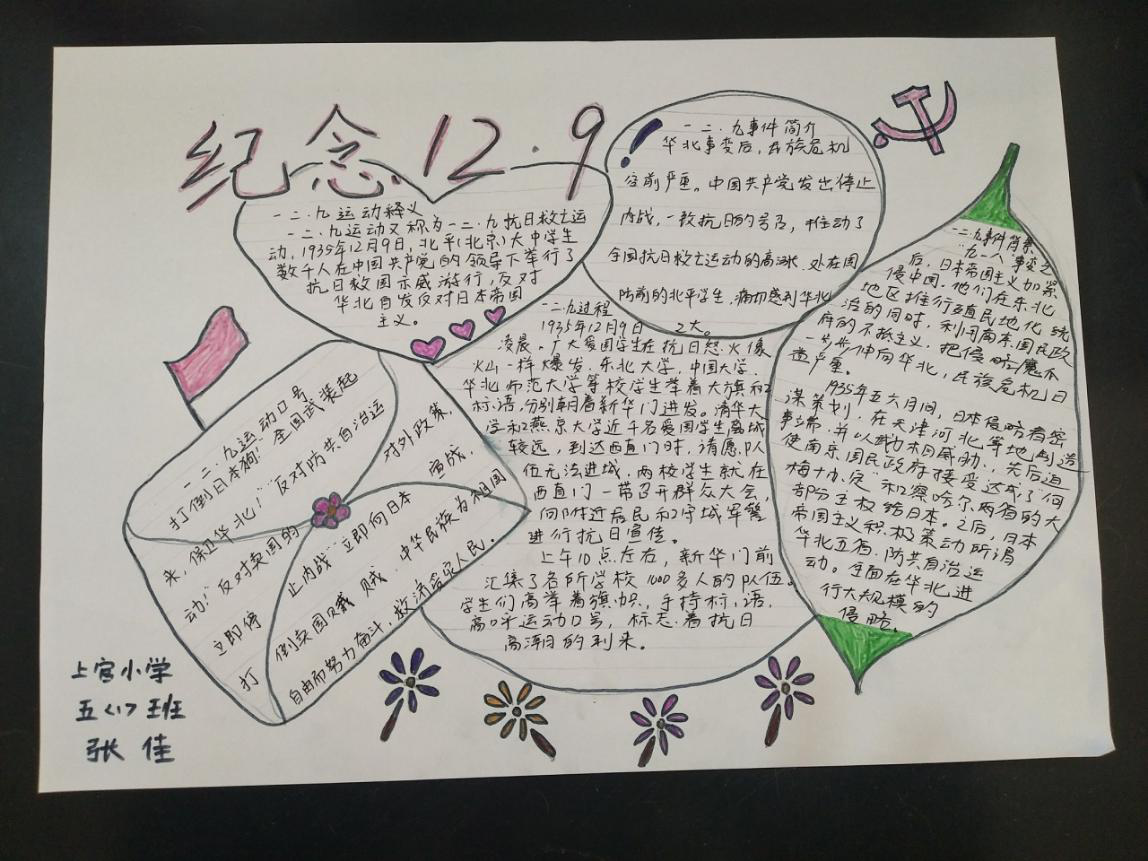 纪念.12.9
一二·九运动释义
一二·九运动又称为一二·九抗日救亡运
动，1935年12月9日，北平(北京)大中学生
数千人在中国共产党的领导下举行了
抗日救国示威游行，反对
华北自发反对日本帝国
主义。
一二·九事件简介
华北事变后，民族危机
空前严重。中国共产党发出停止
内战，一致抗日的号召，推动了
全国抗日救亡运动的高涨。处在国
防前的北平学生，痛切感到华北
之大。
二九过程
1935年12月9日
凌晨。广大爱国学生在抗日怒火像
火山一样爆发。东北大学，中国大学，
华北师范大学等校学生举着大旗和
标语，分别朝着新华门进发。清华大
学和燕京大学近千名爱国学生离城
较远，到达西直门时，请愿队
伍无法进城，两校学生就在
西直门一带召开群众大会，
向附近居民和守城军警
进行抗日宣传。
上午10点左右，新华门前
汇集了各所学校1000多人的队伍。
学生们高举着旗帜，手持标语，
高呼运动口号，标志着抗日
高潮的到来。
一二·九事件背景
"九一八"事变之
后，日本帝国主义加紧
侵中国。他们在东北
地区推行殖民地化统
治的同时，利用南京国民政
府的不抵主义，把侵略魔爪
一步步伸向华北，民族危机日
益严重。
1935年五六月间，日本侵略者密
谋策划，在天津河北等地制造
事端，并以武力相威胁，先后迫
使南京国民政府接受达成了"何
梅协定"和察哈尔两省的大
部分主权给日本。之后，日本
帝国主义积极策动所谓
华北五省，防共自治运
动。全面在华北进
行大规模的
侵略。
一二·九运动口号
打倒日本狗！全国武装起
来，保卫华北！"反对防共自治运
动！"反对卖国的对外政策，
立即停止内战""立即向日本宣战，
打倒卖国贼贼，中华民族为祖国
自由而努力奋斗，救济受灾人民。
上官小学
五<1>班
张佳